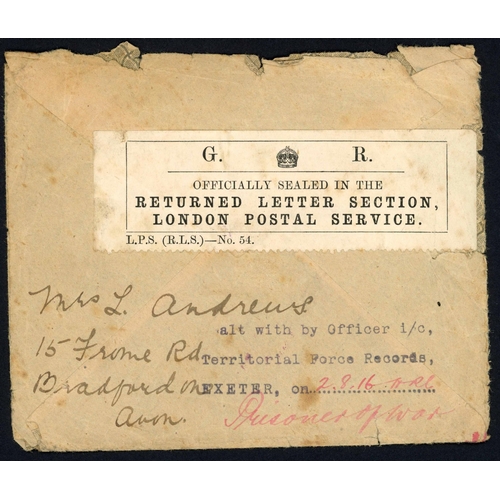 G. R.
OFFICIALLY SEALED IN THE
RETURNED LETTER SECTION,
LONDON POSTAL SERVICE.
L.P.S. (R.L.S.)—No. 54.
Mrs L. Andrews
15 Frome Rd
Bradford on
Avon.
alt with by Officer i/c,
Territorial Force Records,
EXETER, on 2.8.16
Prisoner of War